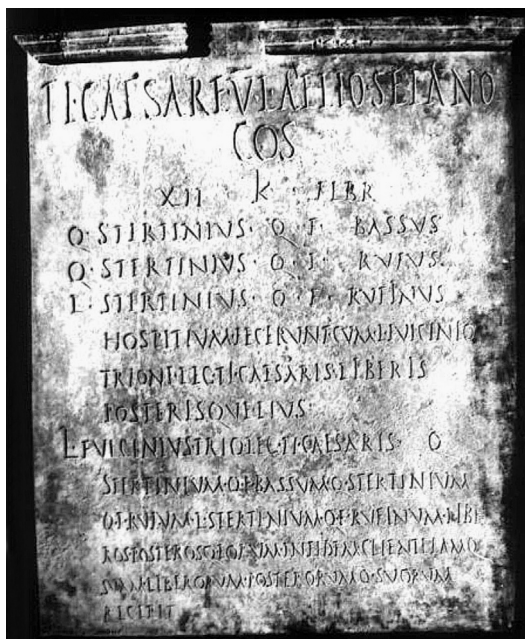 TI·CAESARE·V·L·AELIO·SEIANO
COS
XII K FEBR
Q·STERTINIVS·Q·F·BASSVS
Q·STERTINIVS·Q·F·RVFVS·
L·STERTINIVS·Q·F·RVFINVS
HOSPITIVM·FECERVNT·CVM·L·FVLCINIO
TRIONE·LEG·TI·CAESARIS·LIBERIS
POSTERISQVE·EIVS
L·FVLCINIVS·TRIO·LEG·TI·CAESARIS·Q
STERTINIVM·Q·F·BASSVM·Q·STERTINIVM
Q·F·RVFVM·L·STERTINIVM·Q·F·RVFINVM·LIBE
ROS·POSTEROSQ·EORVM·IN·FIDEM·CLIENTELAMQ
SVAM·LIBERORVM·POSTERORVMQ·SVORVM
RECEPIT